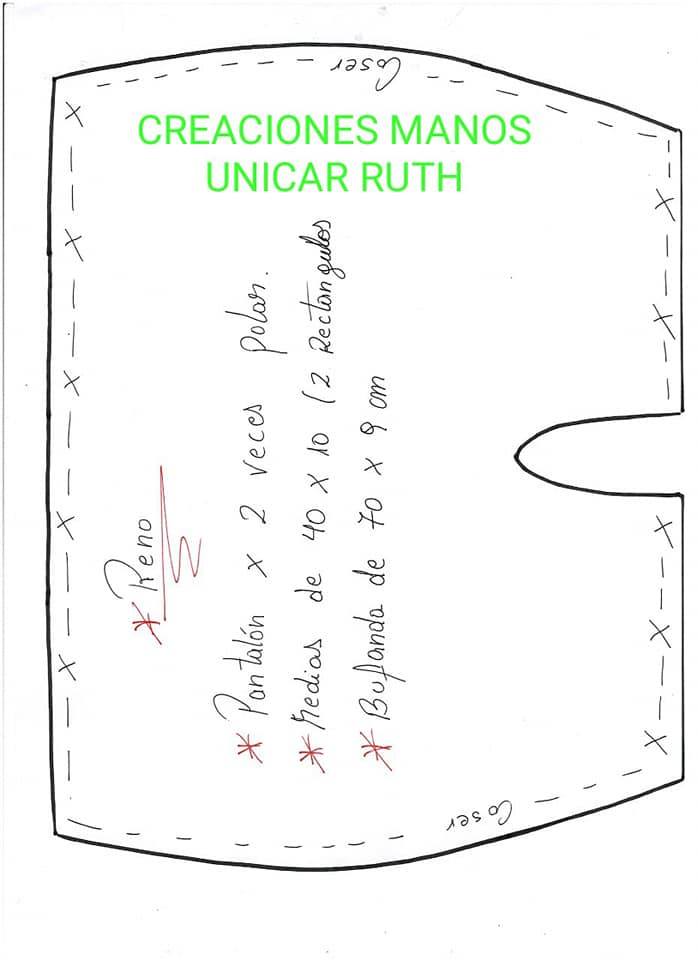 Coser
CREACIONES MANOS
UNICAR RUTH
* Reno
* Pantalón x 2 veces polar.
* Medias de 40 x 10 (2 Rectangulos
* Bufanda de 70 x 9 cm
Coser